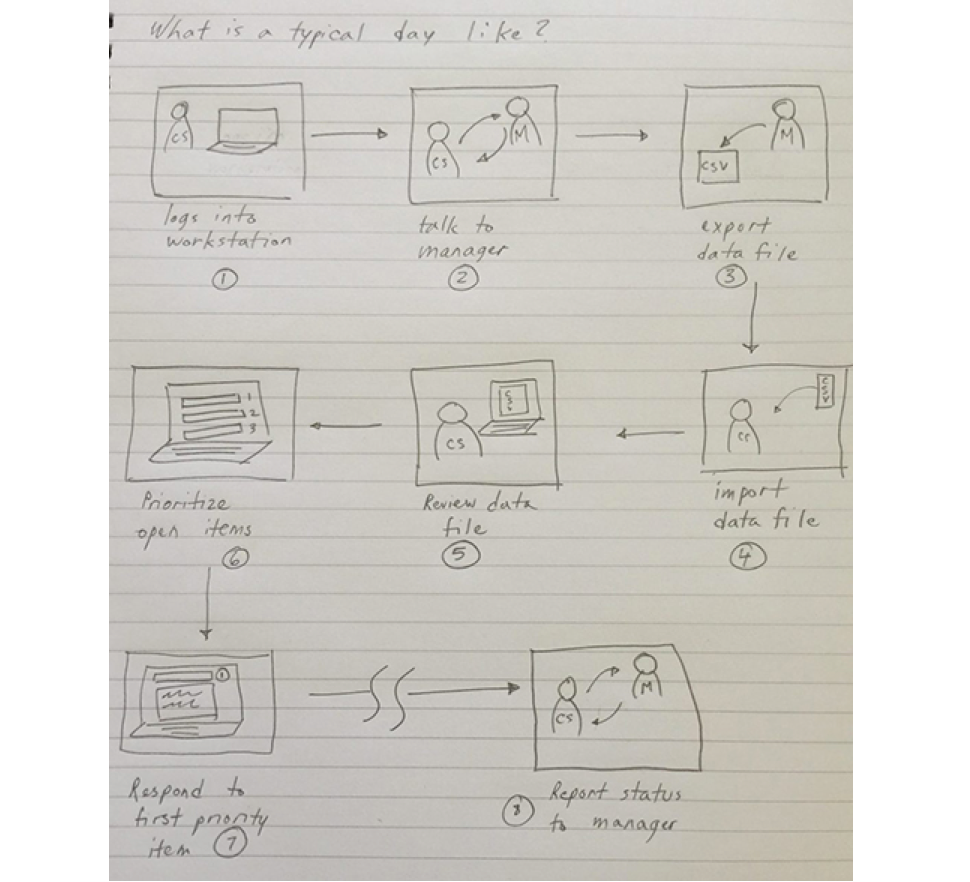 What is a typical day like?
CS
logs into
workstation
1
CS
M
talk to
manager
2
M
CSV
export
data file
3
CSV
CS
import
data file
4
CSV
CS
Review data
file
5
1
2
3
Prioritize
open items
6
1
Respond to
first priority
item 7
CS
M
8 Report status
to manager